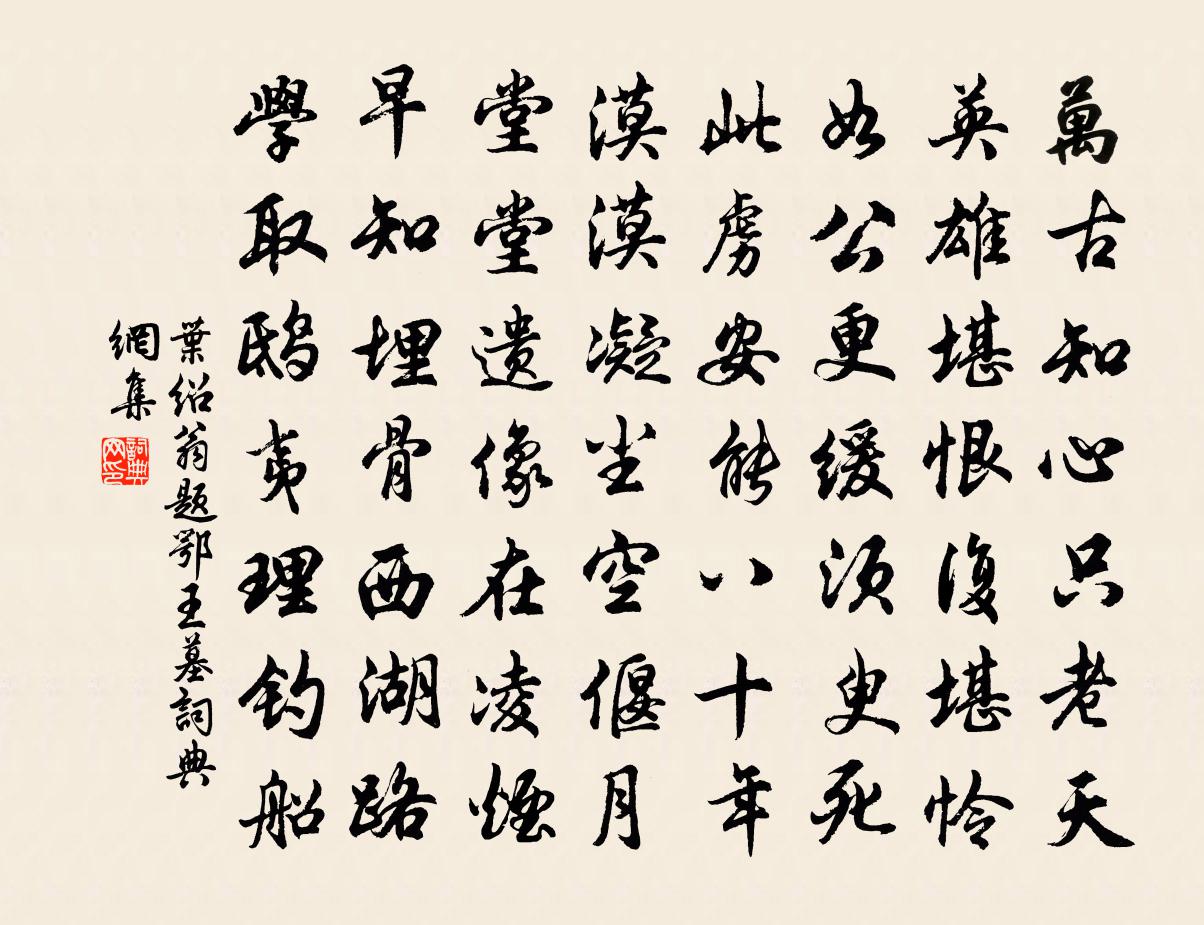 萬古知心只老天
英雄堪恨復堪怜
如公更緩須臾死
此虜安能八十年
漠漠凝尘空偃月
堂堂遗像在凌煙
早知埋骨西湖路
學取鴟夷理钓船
葉绍翁题鄂王墓詞典
網集
詞典
网印